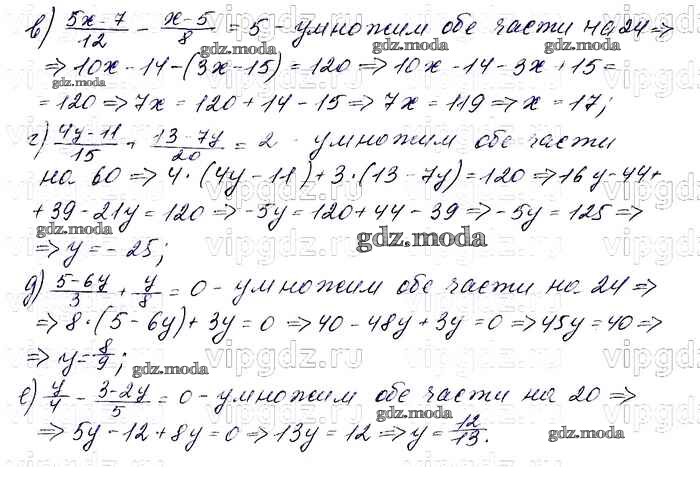 в) (5x-7)/12 - (x-5)/8 = 5 - умножим обе части на 24 ⇒
⇒ 10x - 14 - (3x - 15) = 120 ⇒ 10x - 14 - 3x + 15 =
= 120 ⇒ 7x = 120 + 14 - 15 ⇒ 7x = 119 ⇒ x = 17;
г) (4y-11)/15 + (13-7y)/20 = 2 - умножим обе части
на 60 ⇒ 4·(4y - 11) + 3·(13 - 7y) = 120 ⇒ 16y - 44 +
+ 39 - 21y = 120 ⇒ -5y = 120 + 44 - 39 ⇒ -5y = 125 ⇒
⇒ y = -25;
д) (5-6y)/3 + y/8 = 0 - умножим обе части на 24 ⇒
⇒ 8·(5 - 6y) + 3y = 0 ⇒ 40 - 48y + 3y = 0 ⇒ 45y = 40 ⇒
⇒ y = 8/9;
е) y/4 - (3-2y)/5 = 0 - умножим обе части на 20 ⇒
⇒ 5y - 12 + 8y = 0 ⇒ 13y = 12 ⇒ y = 12/13.
gdz.moda
vipgdz.ru